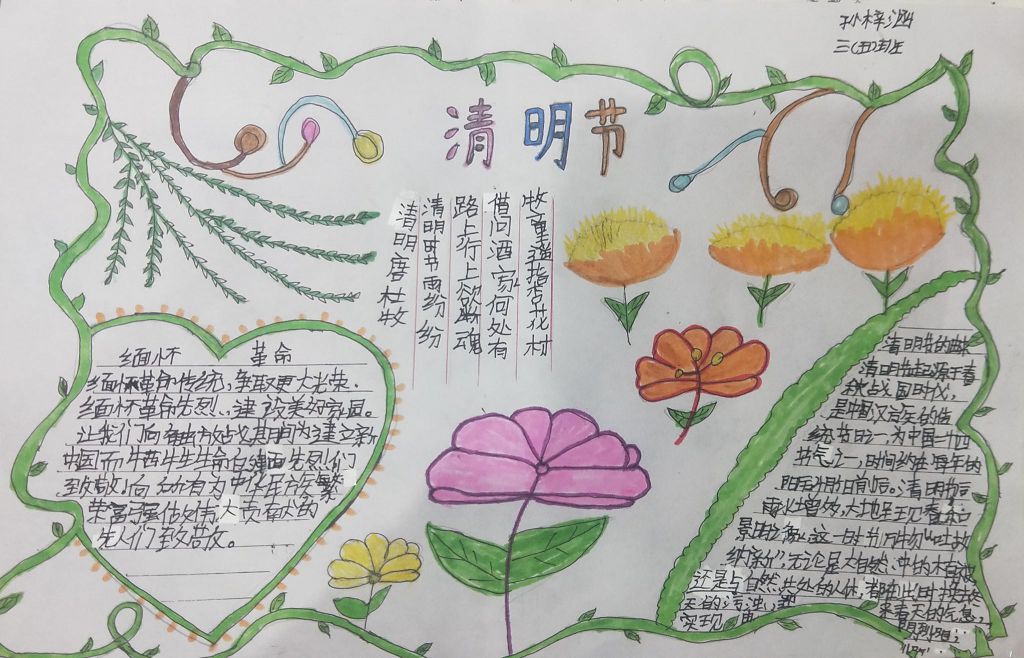 孙梓涵
三(五)班
清明节
清明 唐 杜牧
清明时节雨纷纷
路上行上欲断魂
借问酒家何处有
牧童遥指杏花村
缅怀 革命
缅怀革命传统,争取更大光荣.
缅怀革命先烈,建设美好家园。
让我们向在解放战争期间为建立新
中国而牺牲生命的先烈们
致敬!向所有为中华民族繁
荣富强做伟大贡献的
先人们至敬。
清明节的
清明节起源于春
秋战国时代,
是中国汉族的传
统节日之一,为中国二十四
节气之一,时间约在每年的
阳历4月5日前后。清明节后
雨水增多,大地呈现春和
景明之象。这一时节万物"吐故
纳新",无论是大自然中的植被
还是与自然共处的人体,都在此时
春天的气息,
实现